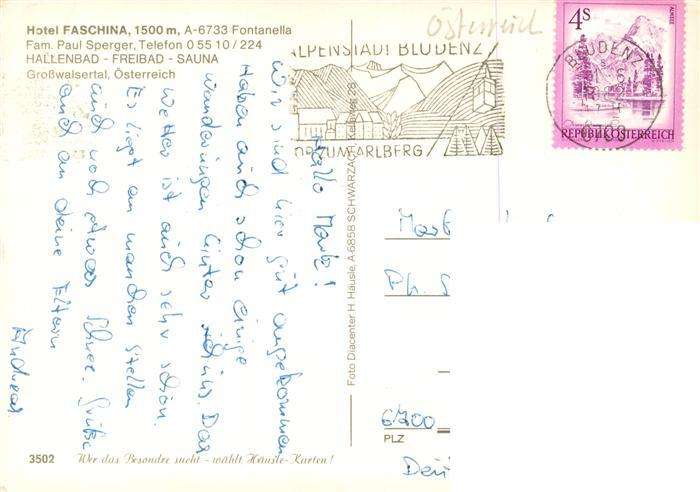 Hotel FASCHINA, 1500 m, A-6733 Fontanella
Fam. Paul Sperger, Telefon 0 55 10 / 224
HALLENBAD - FREIBAD - SAUNA
Großwalsertal, Österreich
Österreich
ALPENSTADT BLUDENZ
ZUM ARLBERG
BLUDENZ
6700
4 S
REPUBLIK ÖSTERREICH
Hallo Mark!
Wir sind hier gut angekommen
Haben auch schon einige
Wanderungen hinter uns. Das
Wetter ist auch sehr schön.
Es liegt an manchen Stellen
auch noch etwas Schnee. Grüße
auch an deine Eltern
Andreas
Foto Diacenter H. Häusle, A-6858 SCHWARZACH
Mark
Ph. S
6700
PLZ
3502 Wer das Besondre sucht - wählt Häusle-Karten!